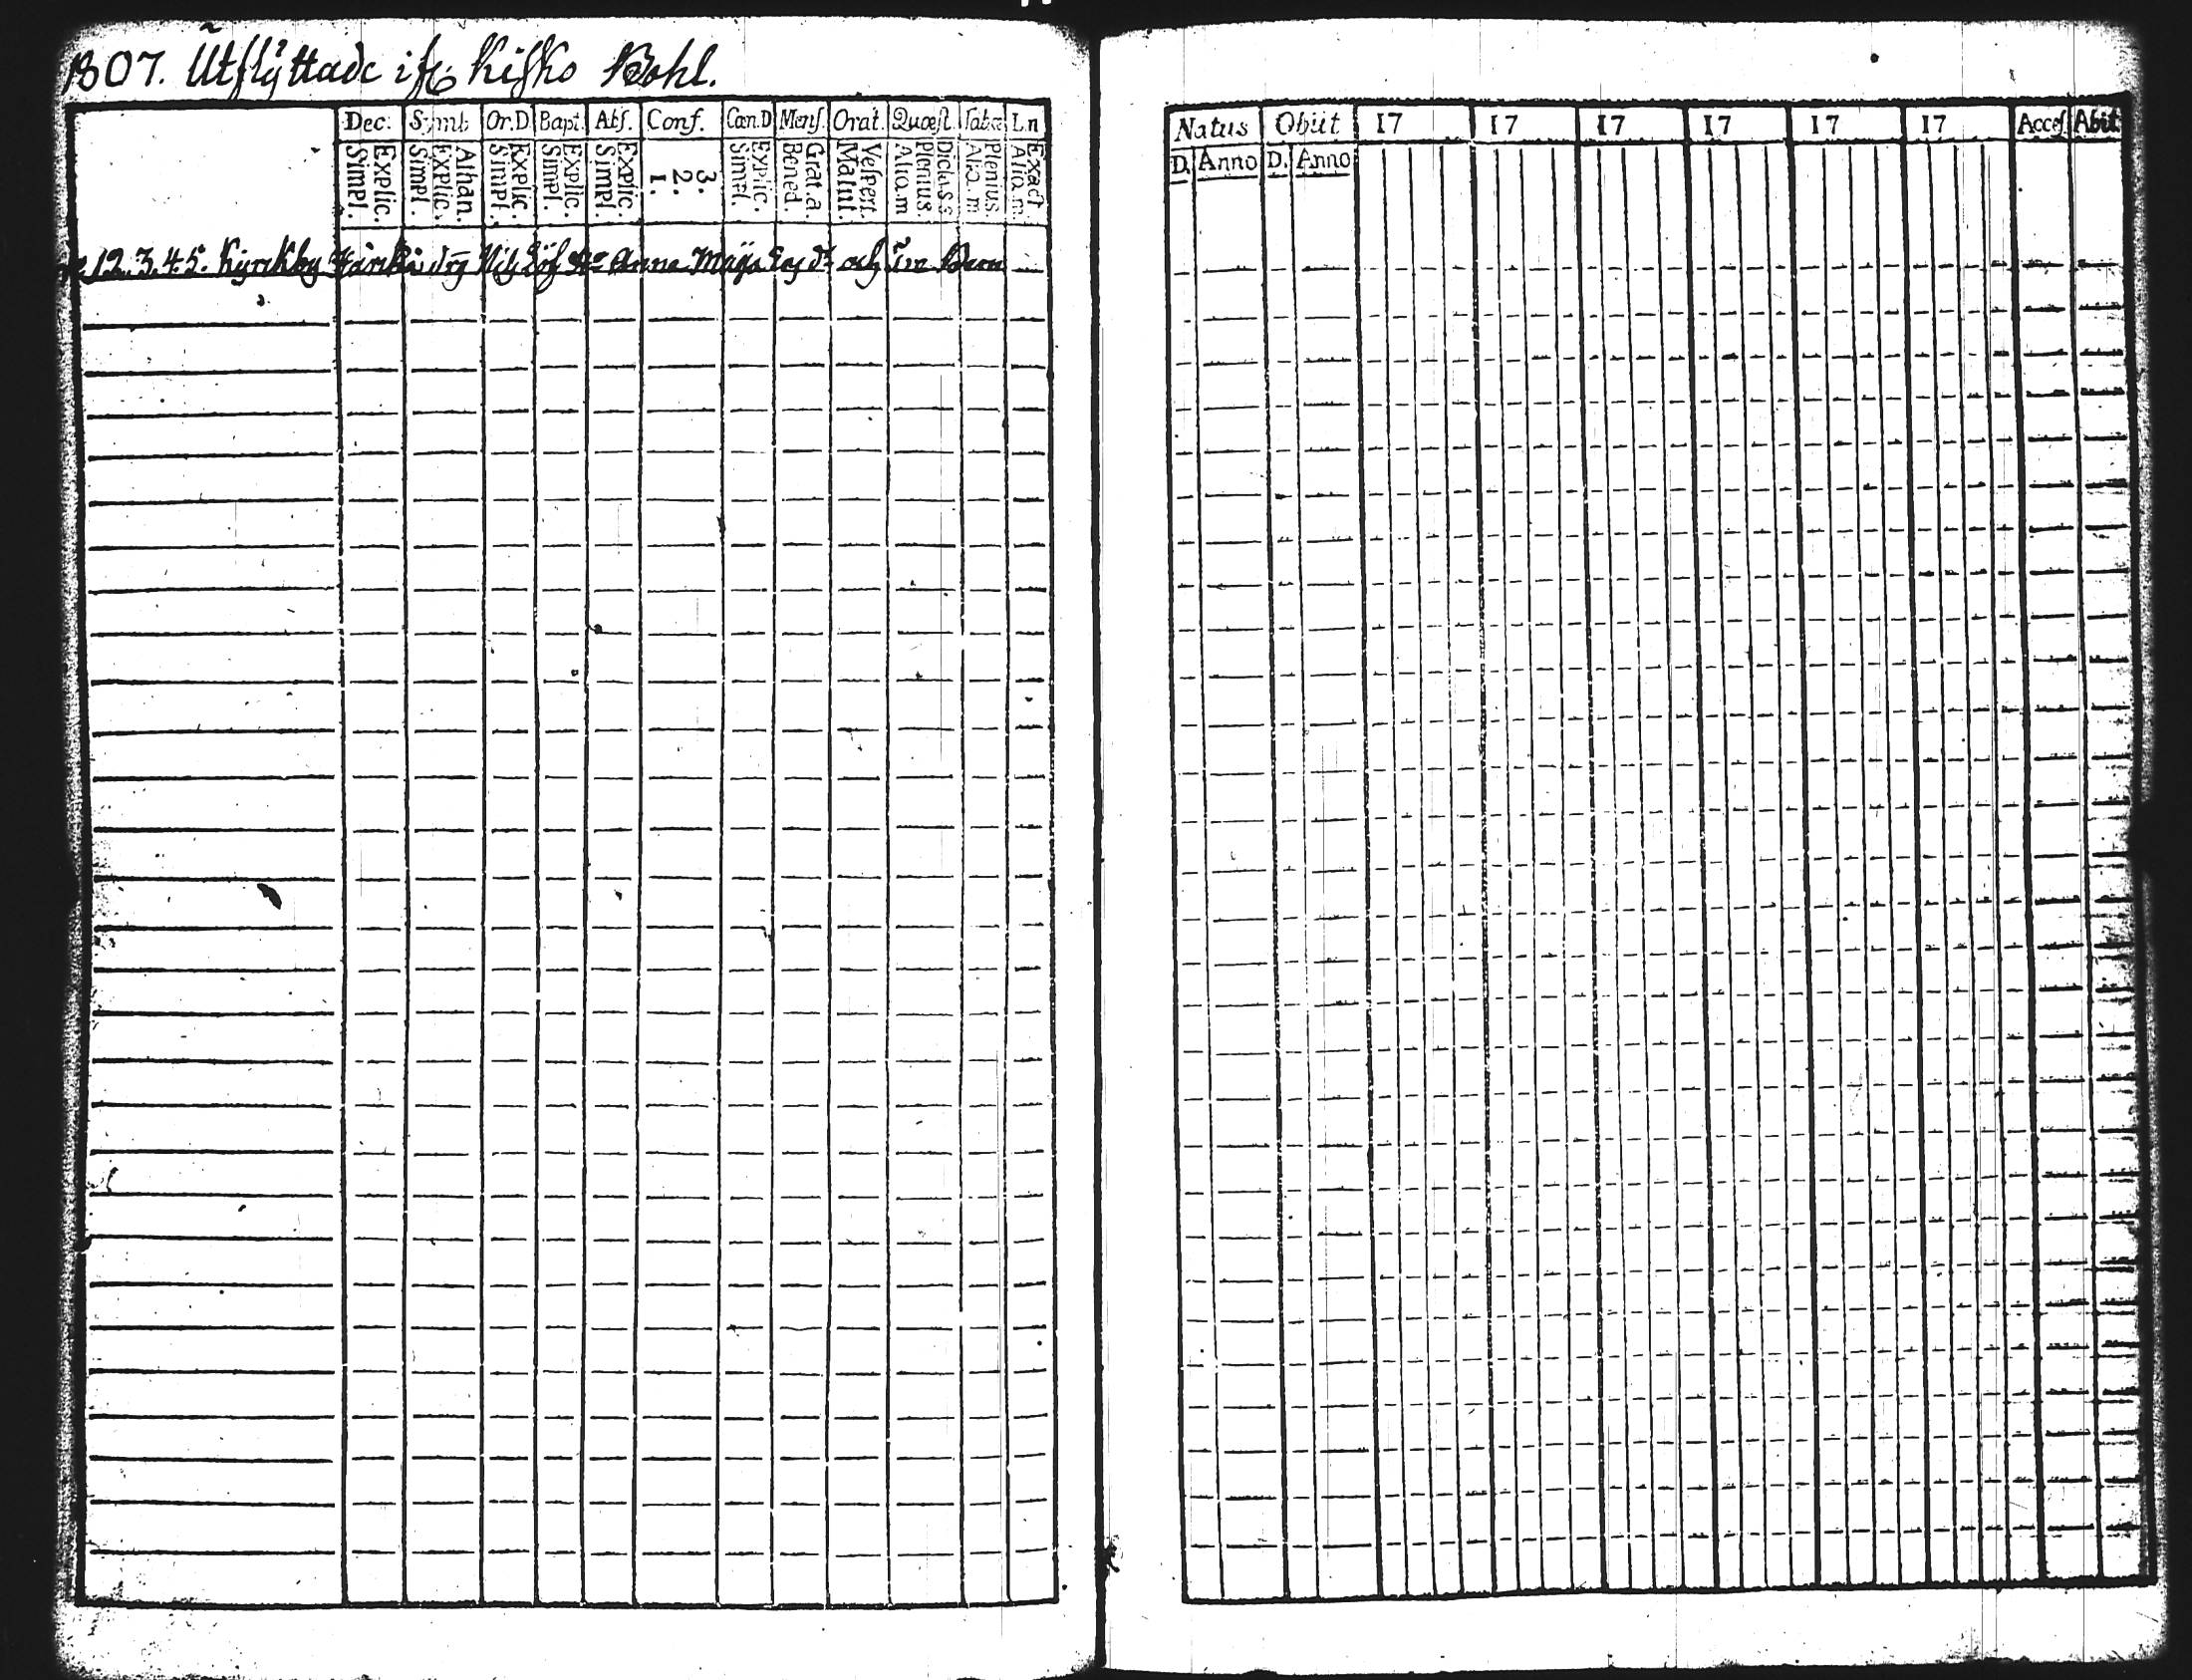 1807. Utflyttade ifr. Kisko Bohl.
Dec. Symb Or.D Bapt. Abs. Conf. Cœn.D Mens. Orat. Quæst. Tabæ Ln
Simpl. Explic. Simpl. Explic. Athan. Simpl. Explic. Simpl. Explic. Simpl. Explic. 1. 2. 3. Simpl. Explic. Bened. Grat. a. Matut. Vespert. Alio. m Plenius. Dicta S.S Alio. m Plenius. Alio. m. Exact
12.3.4.5. Kyrkby och Anna Maja och
Natus Obiit 17 17 17 17 17 17 Acces. Abit
D. Anno D. Anno